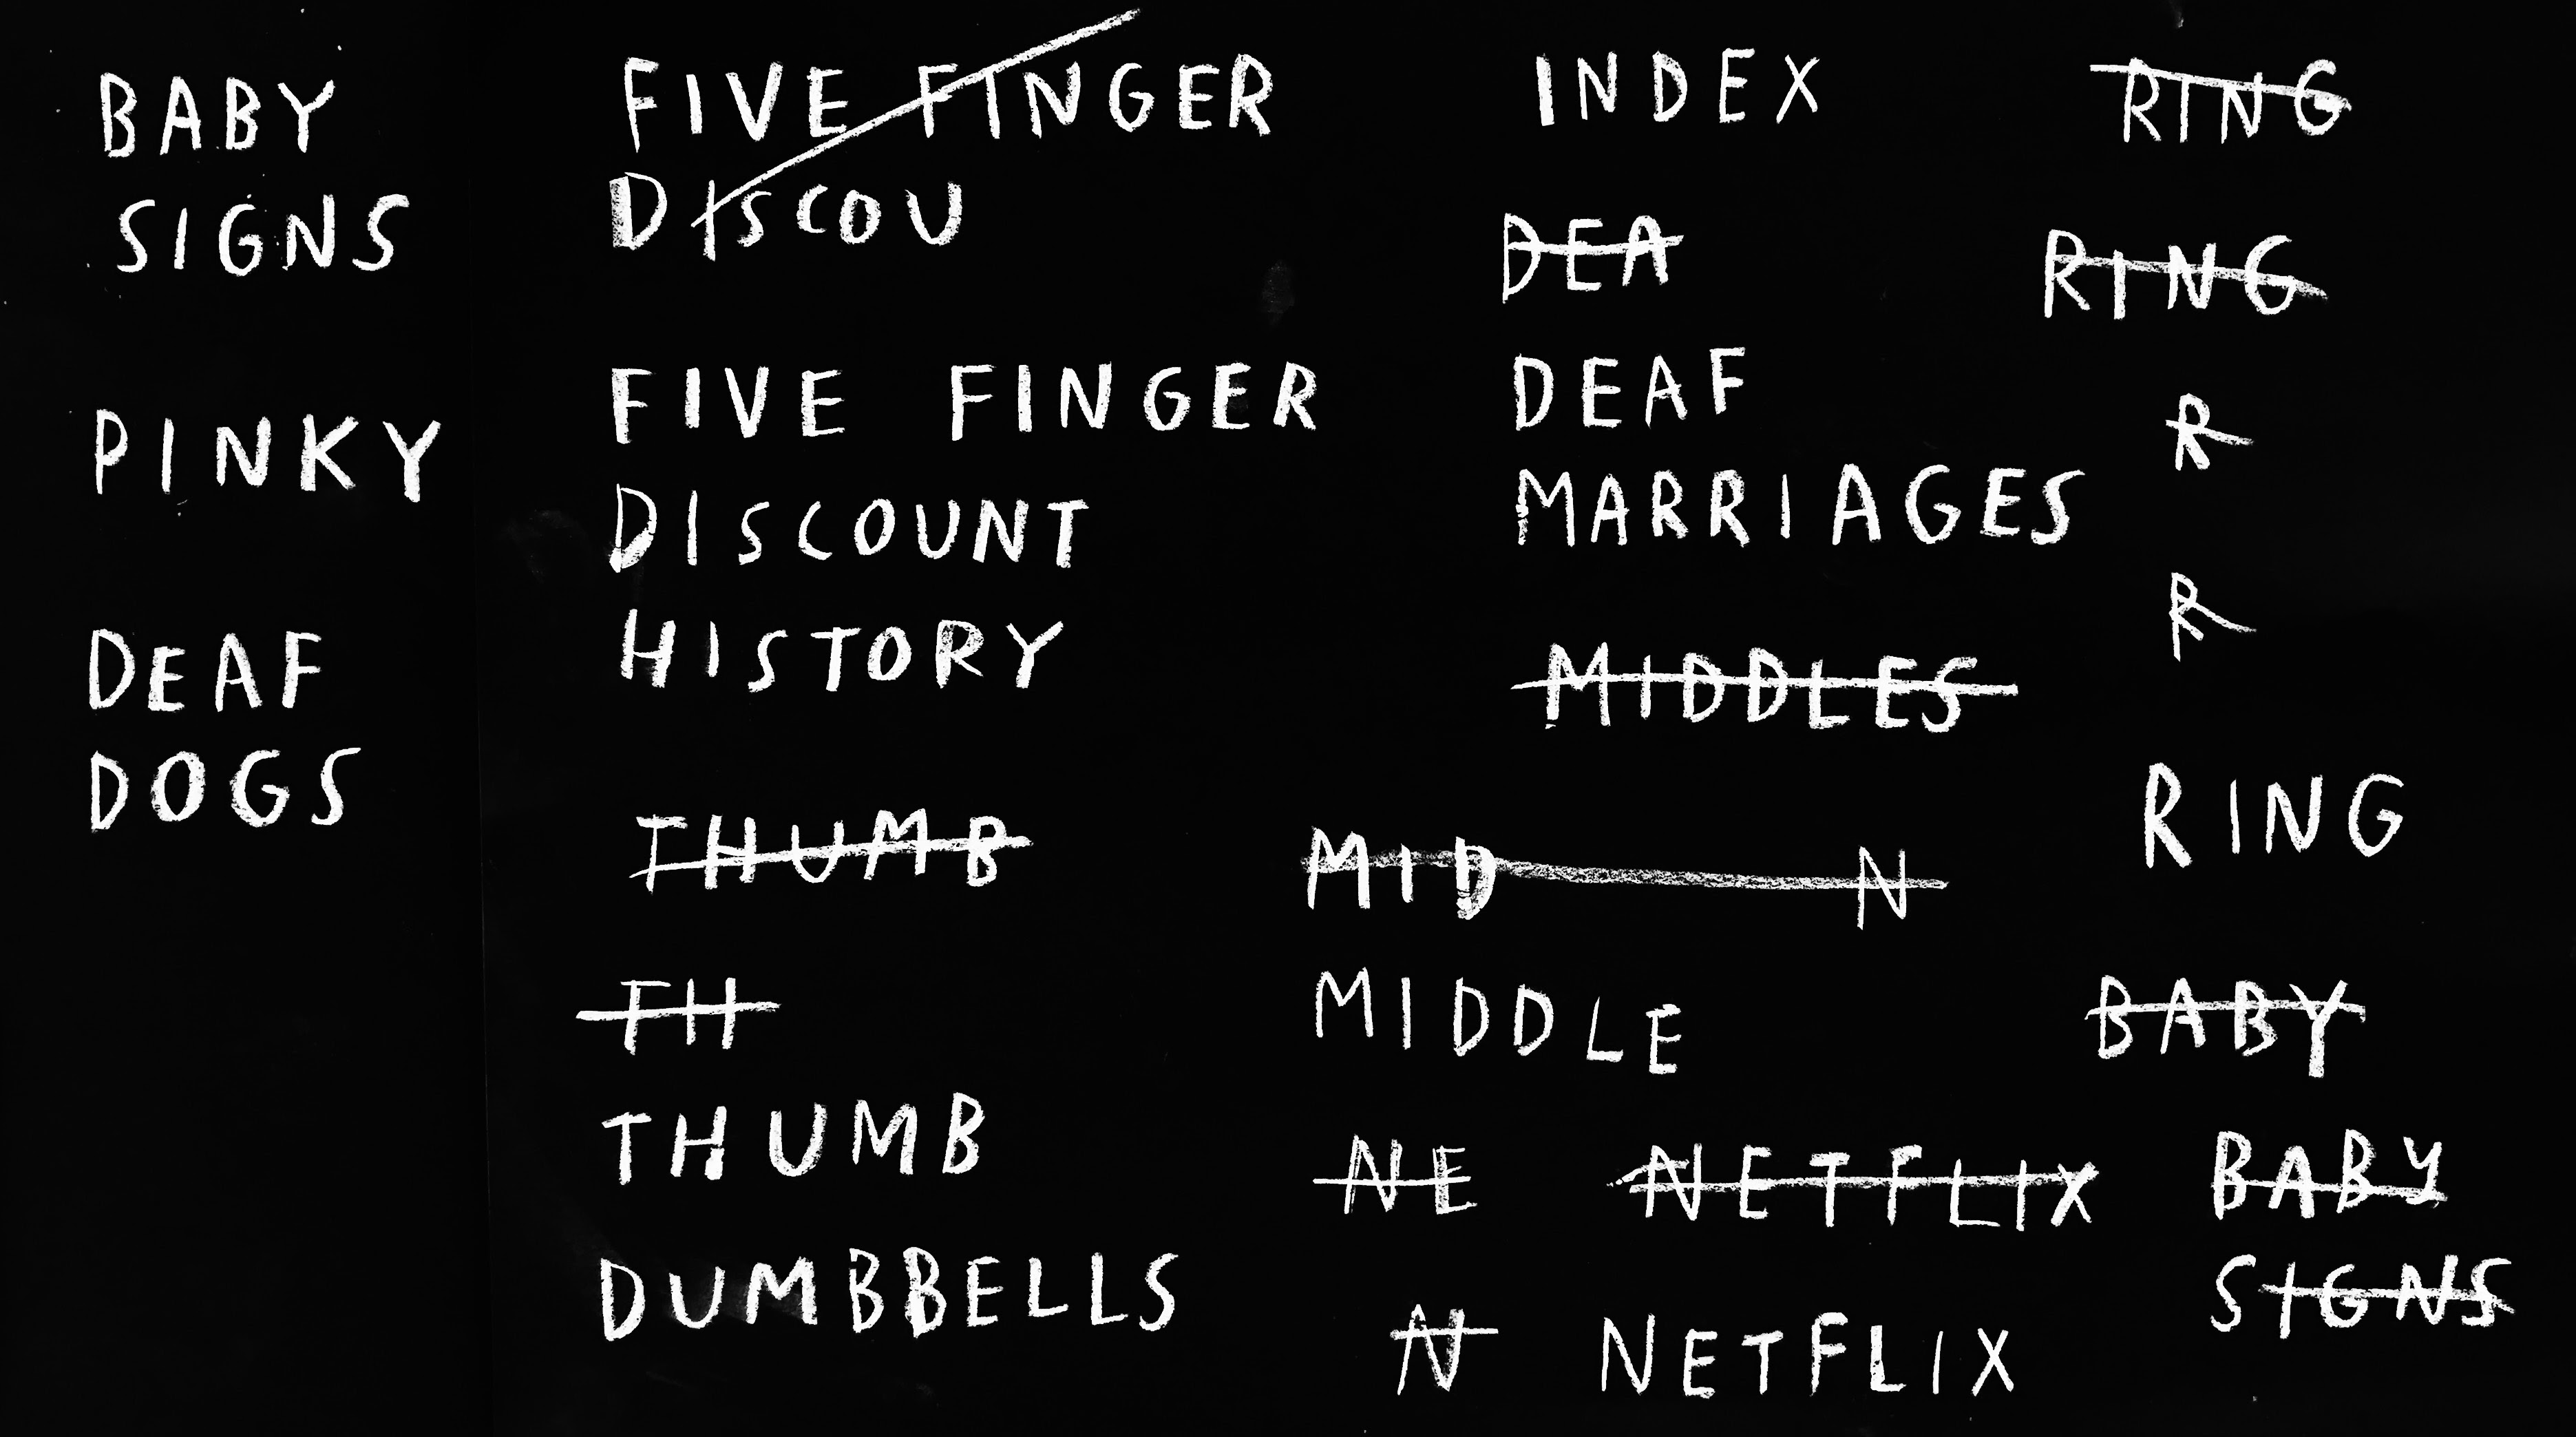 BABY
SIGNS
PINKY
DEAF
DOGS
FIVE FINGER
DISCOU
FIVE FINGER
DISCOUNT
HISTORY
THUMB
TH
THUMB
DUMBBELLS
INDEX
DEA
DEAF
MARRIAGES
MIDDLES
MID N
MIDDLE
NE NETFLIX
N NETFLIX
RING
RING
R
R
RING
BABY
BABY
SIGNS